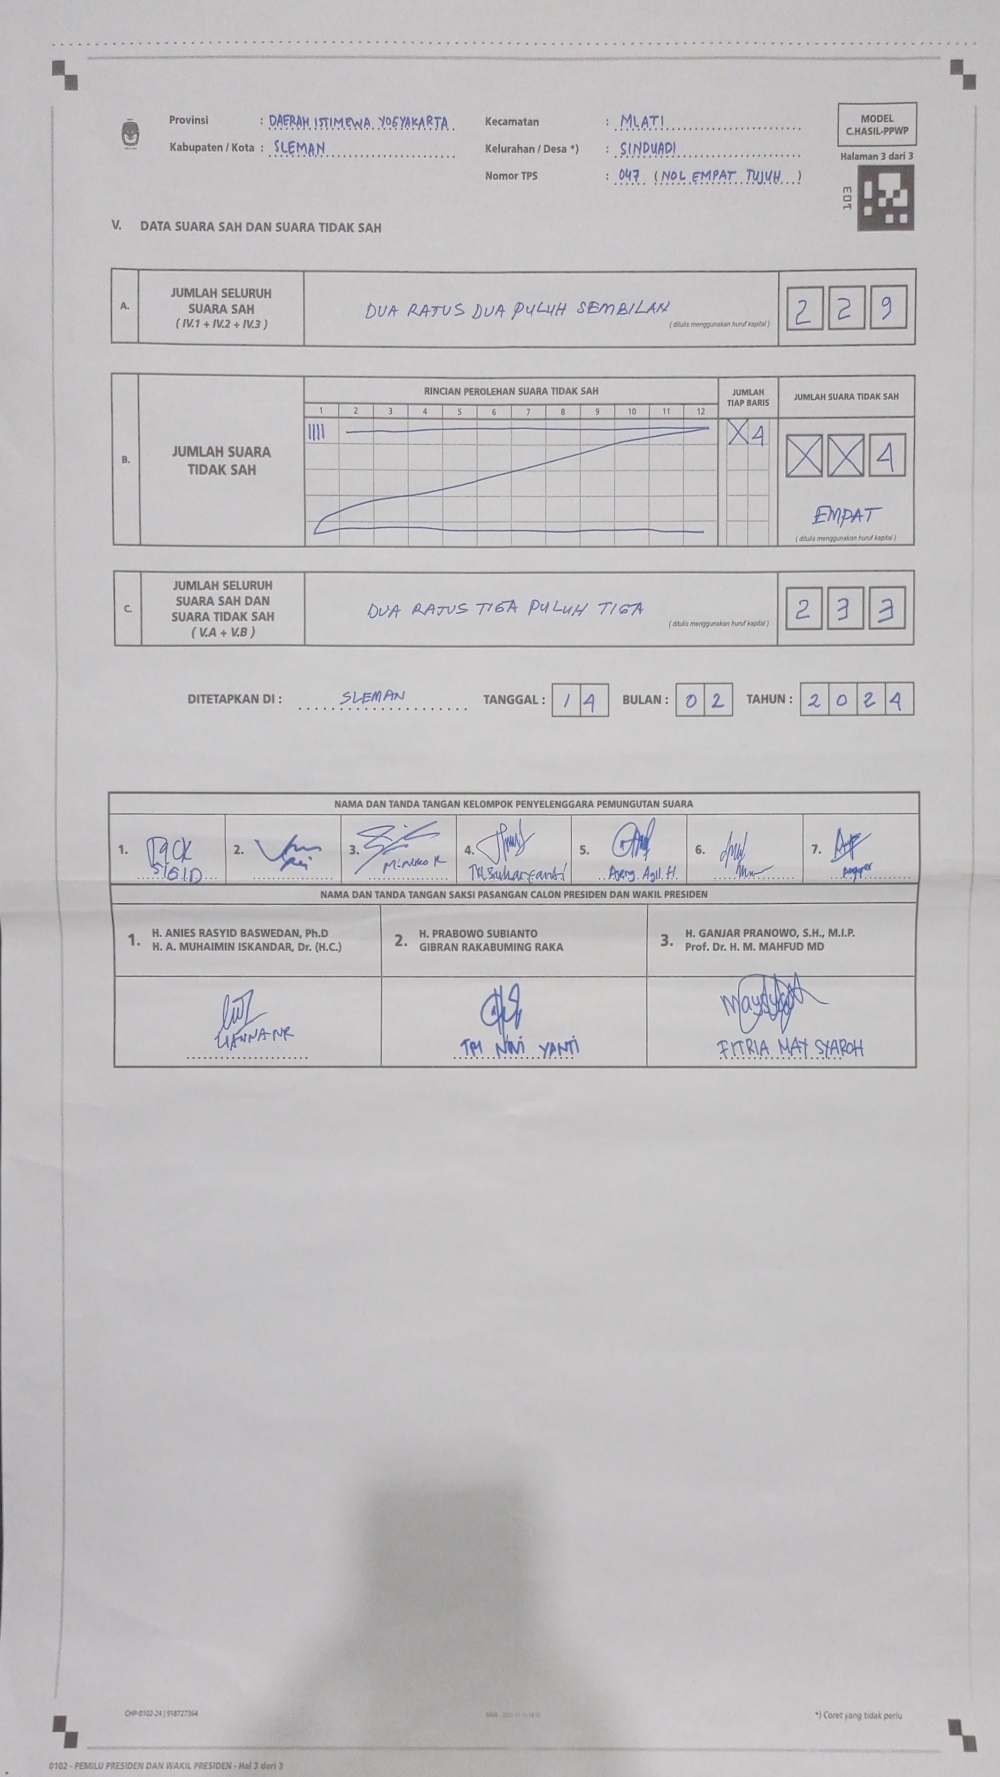 Provinsi : DAERAH ISTIMEWA YOGYAKARTA
Kabupaten / Kota : SLEMAN
Kecamatan : MLATI
Kelurahan / Desa *) : SINDUADI
Nomor TPS : 047 (NOL EMPAT TUJUH)
MODEL
C.HASIL-PPWP
Halaman 3 dari 3
V. DATA SUARA SAH DAN SUARA TIDAK SAH
A.
JUMLAH SELURUH
SUARA SAH
( IV.1 + IV.2 + IV.3 )
DUA RATUS DUA PULUH SEMBILAN
( ditulis menggunakan huruf kapital )
2 2 9
B.
JUMLAH SUARA
TIDAK SAH
RINCIAN PEROLEHAN SUARA TIDAK SAH
1 2 3 4 5 6 7 8 9 10 11 12
JUMLAH
TIAP BARIS
X 4
JUMLAH SUARA TIDAK SAH
X X 4
EMPAT
( ditulis menggunakan huruf kapital )
C.
JUMLAH SELURUH
SUARA SAH DAN
SUARA TIDAK SAH
( V.A + V.B )
DUA RATUS TIGA PULUH TIGA
( ditulis menggunakan huruf kapital )
2 3 3
DITETAPKAN DI : SLEMAN TANGGAL : 1 4 BULAN : 0 2 TAHUN : 2 0 2 4
NAMA DAN TANDA TANGAN KELOMPOK PENYELENGGARA PEMUNGUTAN SUARA
1. 2. 3. 4. 5. 6. 7.
NAMA DAN TANDA TANGAN SAKSI PASANGAN CALON PRESIDEN DAN WAKIL PRESIDEN
1. H. ANIES RASYID BASWEDAN, Ph.D
H. A. MUHAIMIN ISKANDAR, Dr. (H.C.)
2. H. PRABOWO SUBIANTO
GIBRAN RAKABUMING RAKA
3. H. GANJAR PRANOWO, S.H., M.I.P.
Prof. Dr. H. M. MAHFUD MD
YANTI
FITRIA MAY SYAROH
CHP-0102-24 | 918727394
*) Coret yang tidak perlu
0102 - PEMILU PRESIDEN DAN WAKIL PRESIDEN - Hal 3 dari 3